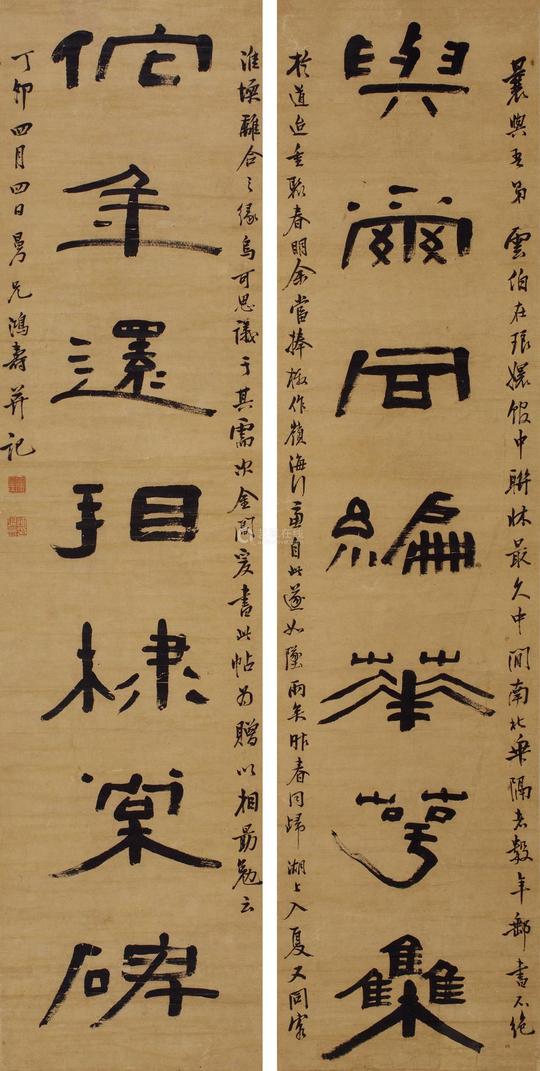 曩與吾弟雲伯在琅嬛館中聯牀最久中間南北乖隔者數年郵書不絕
與爾同編華萼集
於道迨重聚春明余當捧檄作嶺海行意自此遂如墜雨矣昨春同歸湖上入夏又同客
淮壖離合之緣烏可思議于其需次金閶爰書此帖為贈以相勖勉云
佗年還相棣棠碑
丁卯四月四日曼兄鴻壽并記